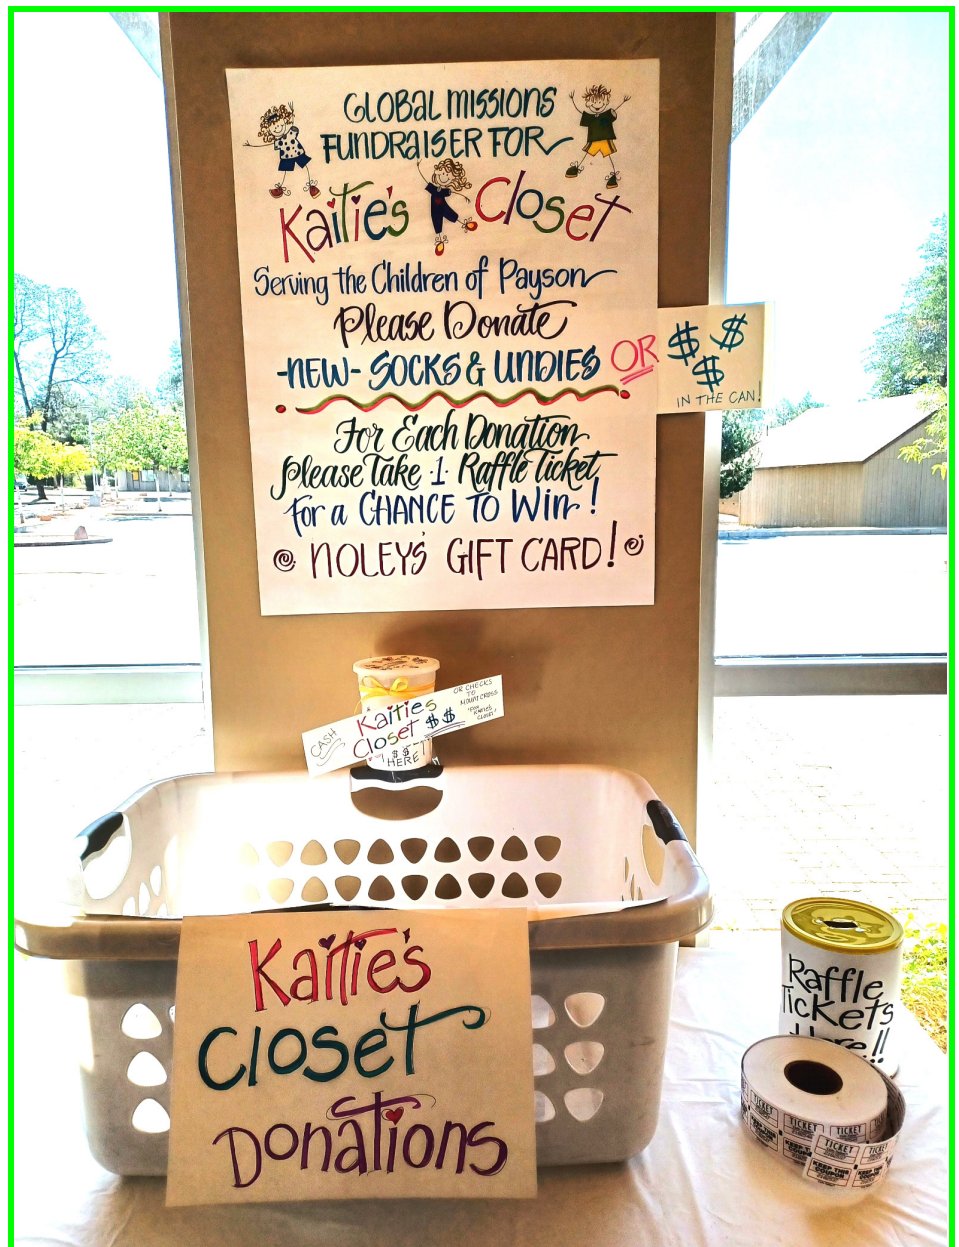 GLOBAL MISSIONS
FUNDRAISER FOR
Kaitie's Closet
Serving the Children of Payson
Please Donate
-NEW- SOCKS & UNDIES OR
$ $
$
IN THE CAN!
For Each Donation
Please Take 1 Raffle Ticket
for a CHANCE TO Win!
NOLEY'S GIFT CARD!
CASH
Kaities
Closet $$
$$
HERE
OR CHECKS
TO
MOUNT CROSS
Kaitie's
Closet
Donations
Raffle
Tickets
Here!!
TICKET
TICKET
TICKET
TICKET
KEEP THIS
COUPON
KEEP THIS
COUPON
KEEP THIS
COUPON